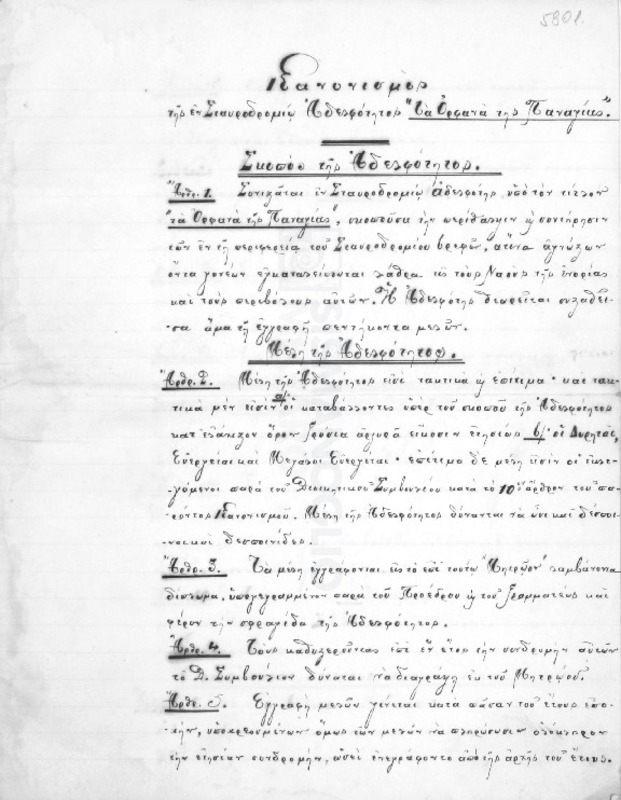 5801.
Κανονισμὸς
τῆς ἐν Σταυροδρομίῳ Ἀδελφότητος "Τὰ Ὀρφανὰ τῆς Παναγίας."
Σκοπὸς τῆς Ἀδελφότητος.
Ἄρθρ. 1. Συνιστᾶται ἐν Σταυροδρομίῳ ἀδελφότης ὑπὸ τὸν τίτλον
"τὰ Ὀρφανὰ τῆς Παναγίας", σκοποῦσα τὴν περίθαλψιν ἢ συντήρησιν
τῶν ἐν τῇ περιφερείᾳ τοῦ Σταυροδρομίου βρεφῶν, ἅτινα ἀγνώστων
ὄντα γονέων ἐγκαταλείπονται λάθρα εἰς τοὺς Ναοὺς τῆς ἐνορίας
καὶ τοὺς περιβόλους αὐτῶν. Ἡ Ἀδελφότης θεωρεῖται συσταθεῖ-
σα ἅμα τῇ ἐγγραφῇ πεντήκοντα μελῶν.
Μέλη τῆς Ἀδελφότητος.
Ἄρθρ. 2. Μέλη τῆς Ἀδελφότητος εἰσὶ τακτικὰ ἢ ἐπίτιμα· καὶ τακ-
τικὰ μὲν εἰσὶν α/. οἱ καταβάλλοντες ὑπὲρ τοῦ σκοποῦ τῆς Ἀδελφότητος
κατ' ἐλάχιστον ὅρον γρόσια ἀργυρᾶ εἴκοσιν ἐτησίως β/. οἱ Δωρηταί,
Εὐεργέται καὶ Μεγάλοι Εὐεργέται· ἐπίτιμα δὲ μέλη εἰσὶν οἱ ἐκλε-
γόμενοι παρὰ τοῦ Διοικητικοῦ Συμβουλίου κατὰ τὸ 10ον ἄρθρον τοῦ πα-
ρόντος Κανονισμοῦ. Μέλη τῆς Ἀδελφότητος δύνανται νὰ ὦσι καὶ δέσποι-
ναι καὶ δεσποινίδες.
Ἄρθρ. 3. Τὰ μέλη ἐγγράφονται εἰς τὸ ἐπὶ τούτῳ "Μητρῷον" λαμβάνοντα
δίπλωμα, ὑπογεγραμμένον παρὰ τοῦ Προέδρου ἢ τοῦ Γραμματέως καὶ
φέρον τὴν σφραγῖδα τῆς Ἀδελφότητος.
Ἄρθρ. 4. Τοὺς καθυστεροῦντας ἐπὶ ἓν ἔτος τὴν συνδρομὴν αὐτῶν
τὸ Δ. Συμβούλιον δύναται νὰ διαγράψῃ ἐκ τοῦ Μητρῴου.
Ἄρθρ. 5. Ἐγγραφὴ μελῶν γίνεται κατὰ πᾶσαν τοῦ ἔτους ἐπο-
χήν, ὑποχρεουμένων ὅμως τῶν μελῶν νὰ πληρώσωσιν ὁλόκληρον
τὴν ἐτησίαν συνδρομήν, ὡσεὶ ἐνεγράφοντο ἀπὸ τῆς ἀρχῆς τοῦ ἔτους.